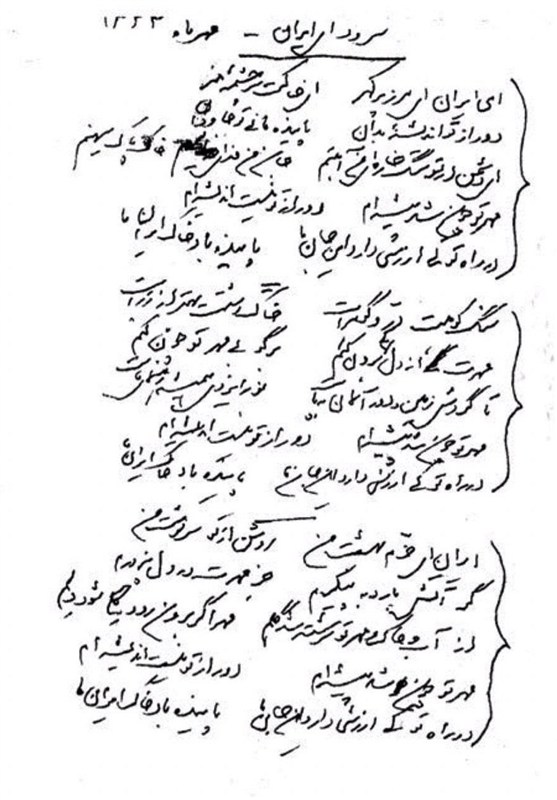 سرود ای ایران - مهر ماه ۱۳۲۳
ای ایران ای مرز پرگهر ای خاکت سرچشمه هنر
دور از تو اندیشه بدان پاینده مانی تو جاودان
ای دشمن ار تو سنگ خاره‌ای من آهنم جان من فدای خاک پاک میهنم
مهر تو چون شد پیشه‌ام دور از تو نیست اندیشه‌ام
در راه تو کی ارزشی دارد این جان ما پاینده باد خاک ایران ما
سنگ کوهت در و گوهر است خاک دشتت بهتر از زر است
مهرت از دل کی برون کنم برگو بی مهر تو چون کنم
تا گردش زمین و دور آسمان بپاست نور ایزدی همیشه رهنمای ماست
مهر تو چون شد پیشه‌ام دور از تو نیست اندیشه‌ام
در راه تو کی ارزشی دارد این جان ما پاینده باد خاک ایران ما
ایران ای خرم بهشت من روشن از تو سرنوشت من
گر آتش بارد به پیکرم جز مهرت در دل نپرورم
از آب و خاک و مهر تو سرشته شد گلم مهر اگر برون رود تهی شود دلم
مهر تو چون شد پیشه‌ام دور از تو نیست اندیشه‌ام
در راه تو کی ارزشی دارد این جان ما پاینده باد خاک ایران ما